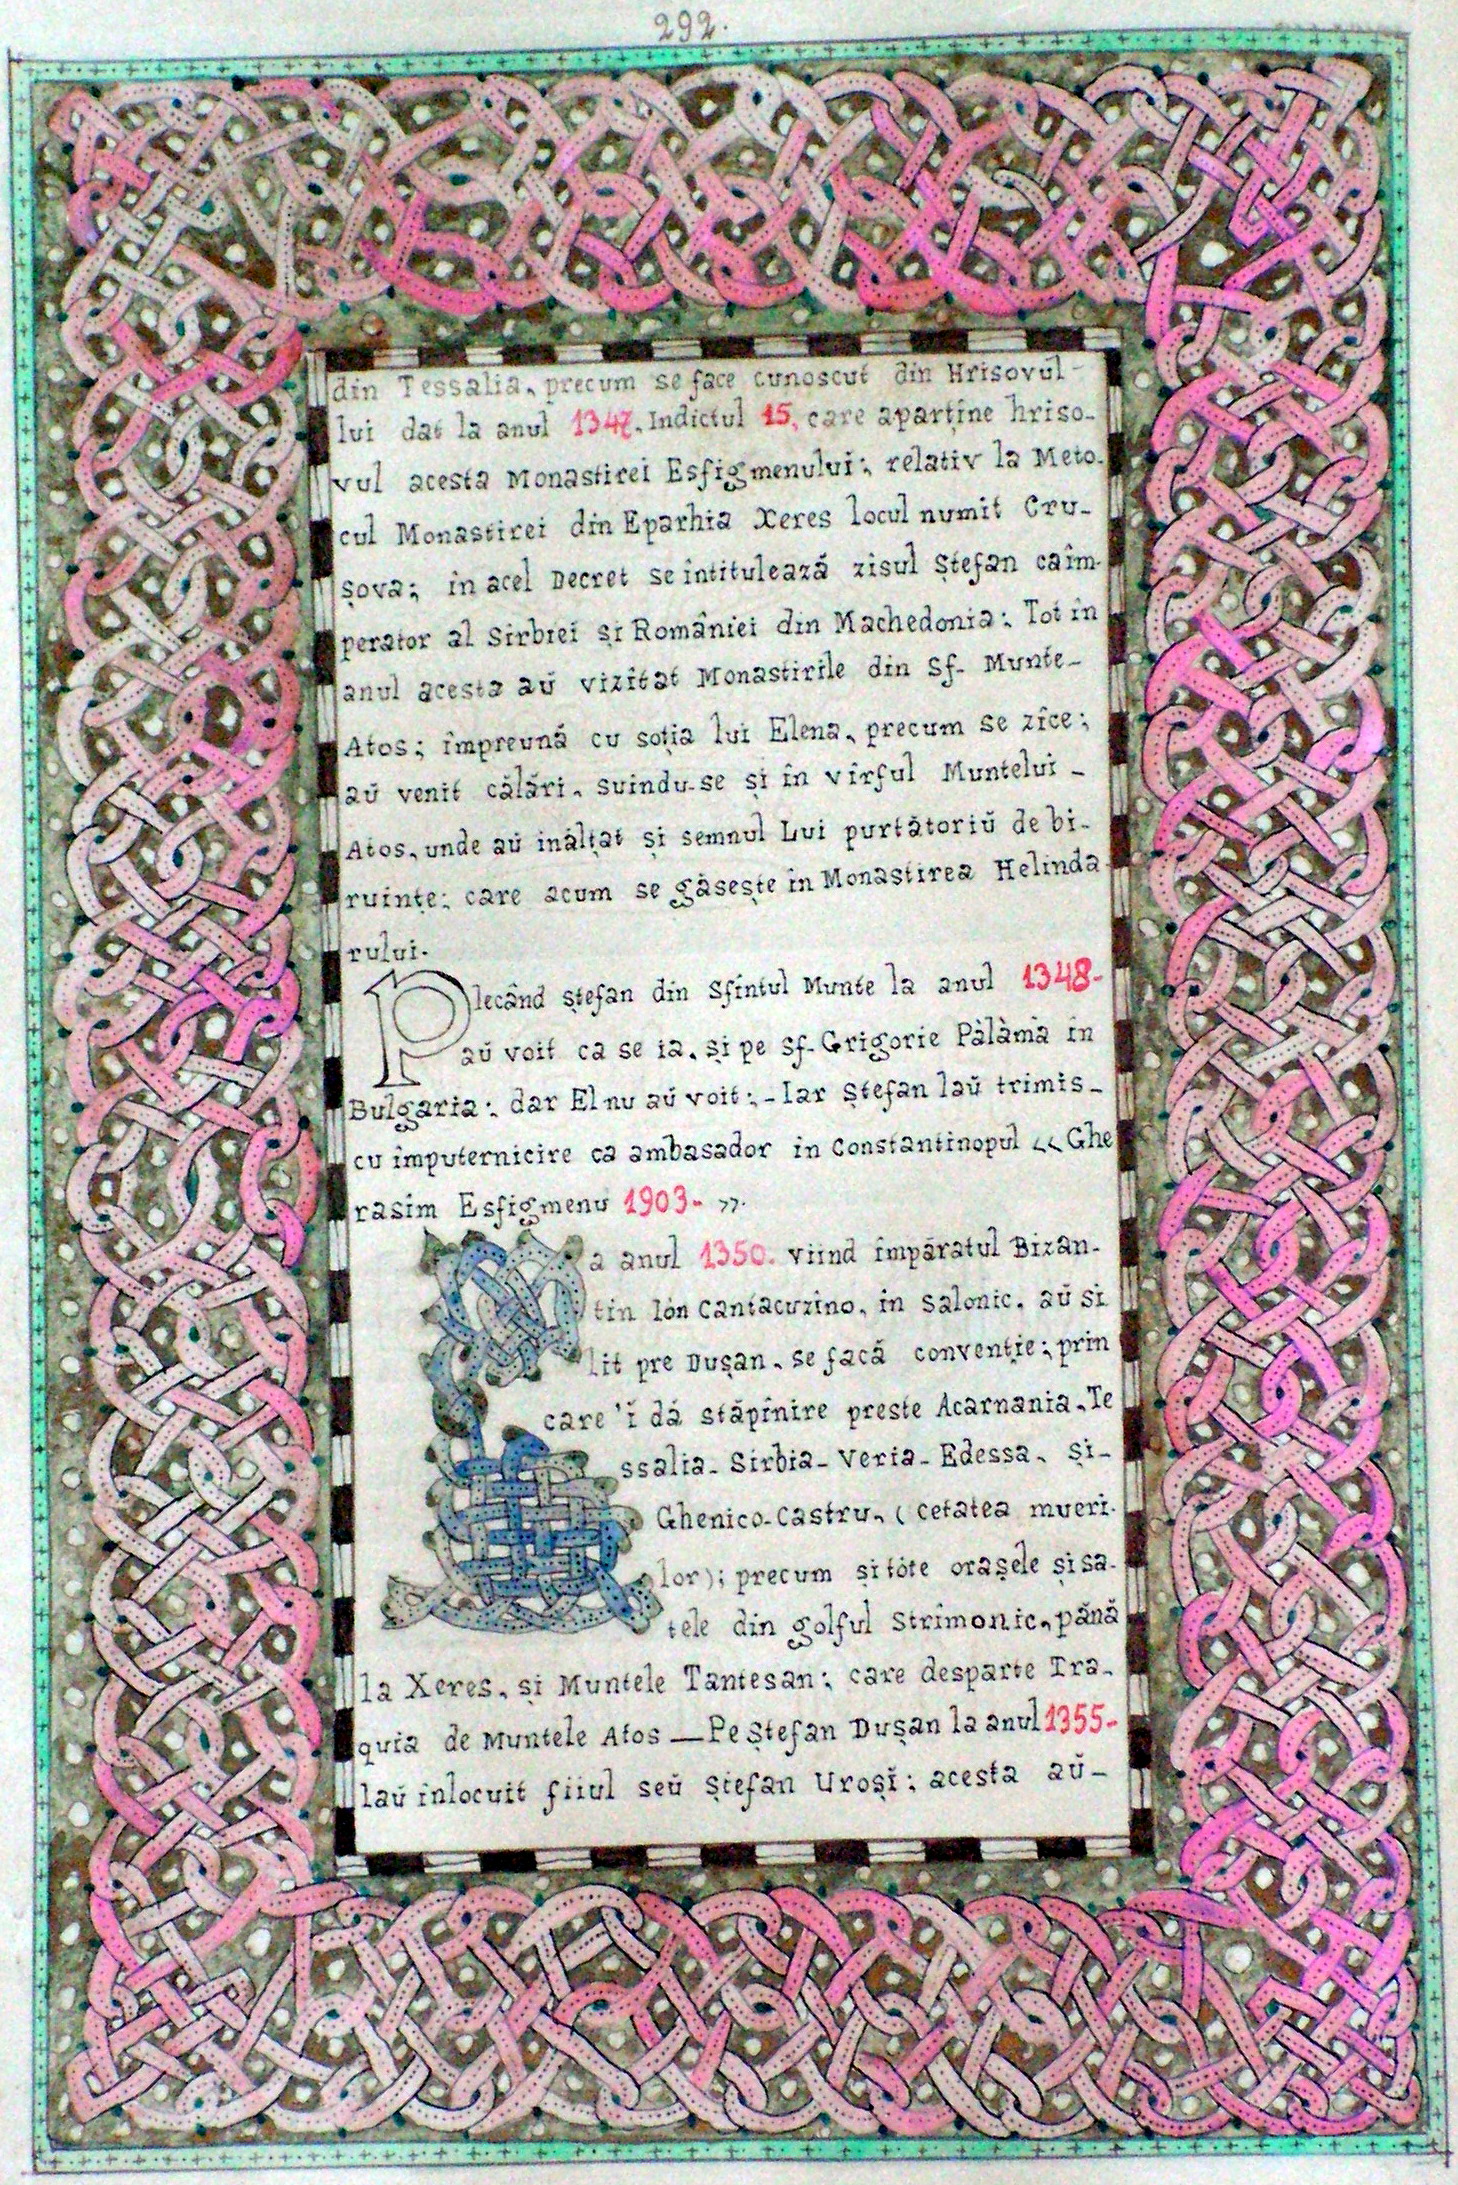 292.
din Tessalia, precum se face cunoscut din Hrisovul-
lui dat la anul 1347, Indictul 15, care aparține hriso-
vul acesta Monastirei Esfigmenului; relativ la Meto-
cul Monastirei din Eparhia Xeres locul numit Cru-
șova; in acel Decret se întitulează zisul Ștefan ca îm-
perator al Sîrbiei și României din Machedonia; Tot în
anul acesta aŭ vizîtat Monastirile din Sf- Munte-
Atos; împreună cu soția lui Elena, precum se zîce;
aŭ venit călări, suindu-se și în vîrful Muntelui -
Atos, unde aŭ inălțat și semnul Lui purtătoriŭ de bi-
ruințe; care acum se găsește in Monastirea Helinda-
rului.
Plecând Ștefan din Sfîntul Munte la anul 1348-
aŭ voit ca se ia, și pe Sf- Grigorie Pàlàma in
Bulgaria; dar El nu aŭ voit; - Iar Ștefan laŭ trimis-
cu împuternicire ca ambasador in Constantinopul «Ghe
rasim Esfigmenu 1903- ».
La anul 1350. viind împăratul Bizan-
tin Ión Cantacuzino, in Salonic, aŭ si
lit pre Dușan, se facă convenție; prin
care 'ĭ dá stăpînire preste Acarnania, Te
ssalia- Sîrbia- Veria- Edessa, și-
Ghenico-Castru, ( cetatea mueri-
lor); precum și tóte orașele și sa-
tele din golful Strîmonic, până
la Xeres, și Muntele Tantesan; care desparte Tra-
quia de Muntele Atos — Pe Ștefan Dușan la anul 1355-
laŭ inlocuit fiiul seŭ Ștefan Uroșĭ; acesta aŭ-